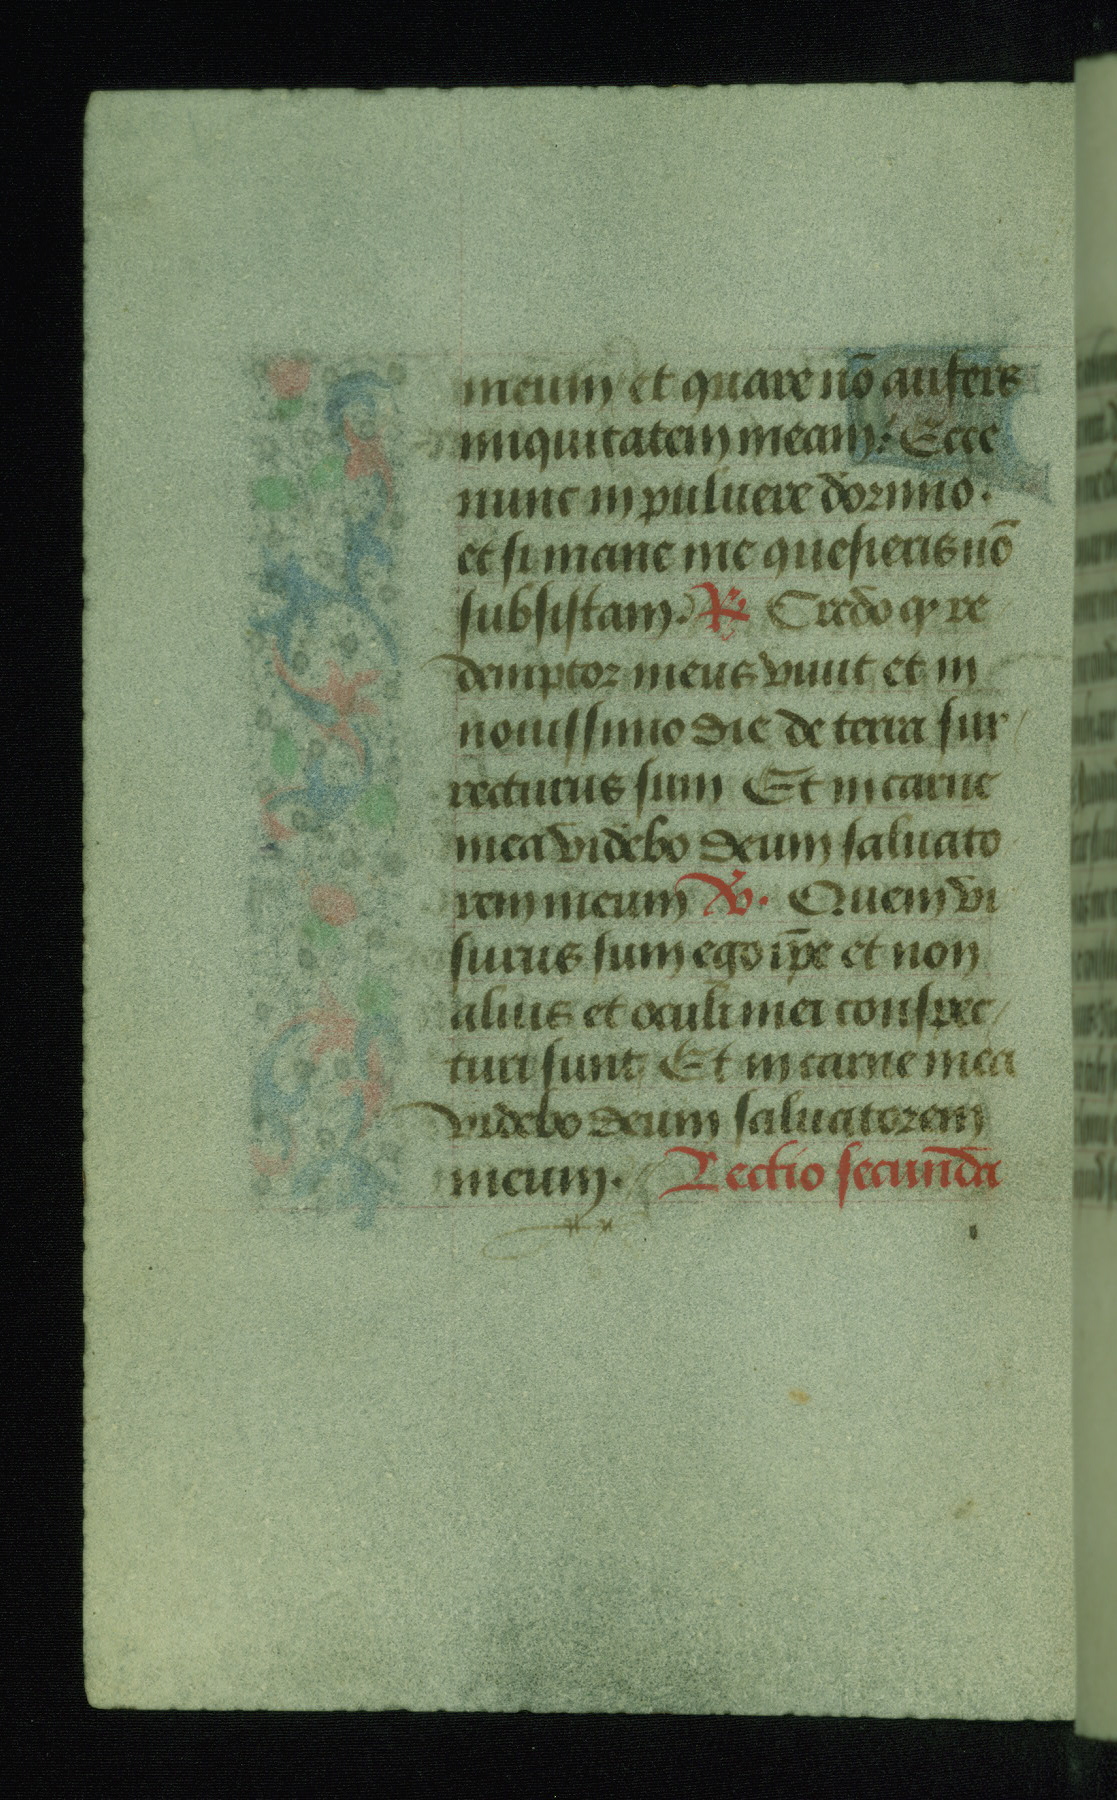 meum et quare nō aufers
iniquitatem meam: Ecce
nunc in puluere dormio.
et si mane me quesieris nō
subsistam. ℟ Credo ꝙ re
demptor meus viuit et in
nouissimo die de terra sur
recturus sum Et in carne
mea videbo deum saluato
rem meum ℣. Quem vi
surus sum ego ip̄e et non
alius et oculi mei conspec
turi sunt Et in carne mea
videbo deum saluatorem
meum. Lectio secunda